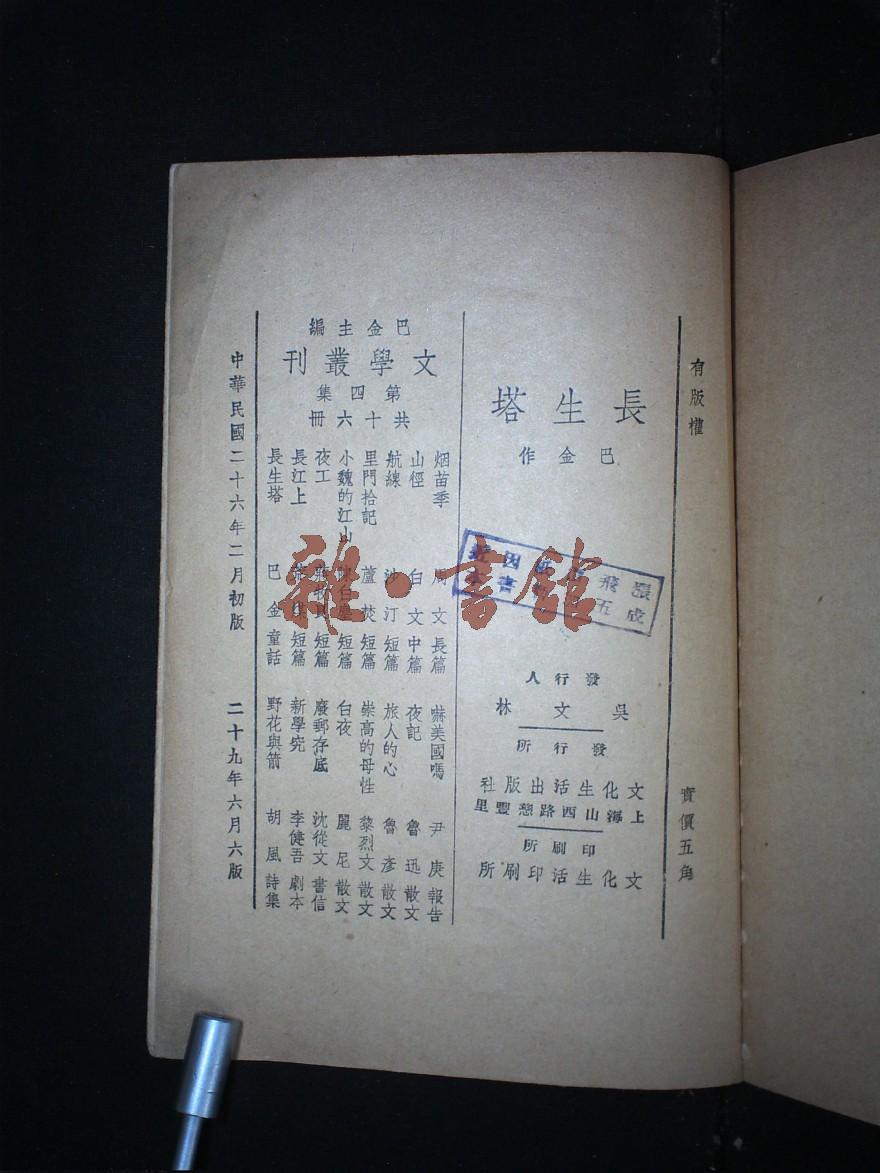 有版權
實價五角
長生塔
巴金作
發行人
吳文林
發行所
文化生活出版社
上海山西路慈豐里
印刷所
文化生活印刷所
巴金主編
文學叢刊
第四集
共十六冊
烟苗季 周文 長篇
山徑 白文 中篇
航線 沙汀 短篇
里門拾記 蘆焚 短篇
小魏的江山 陳白塵 短篇
夜工 蔣牧良 短篇
長江上 荒煤 短篇
長生塔 巴金 童話
嚇美國嗎 尹庚 報告
夜記 魯迅 散文
旅人的心 魯彥 散文
崇高的母性 黎烈文 散文
白夜 麗尼 散文
廢郵存底 沈從文 書信
新學究 李健吾 劇本
野花與箭 胡風 詩集
中華民國二十六年二月初版 二十九年六月六版
雜·書館